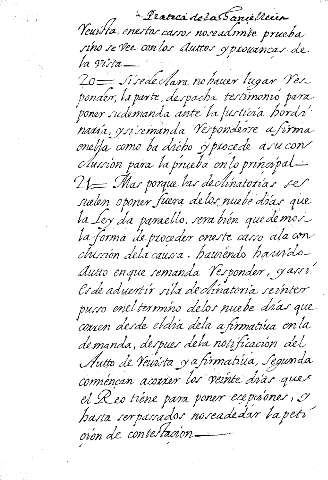 Pratica de la Canselleria
Revista, en estos cassos no se admite prueba
sino se vee con los Auttos y provanças de
la vista
20= Si se declara no haver lugar res-
ponder, la parte, despacha testimonio para
poner su demanda ante la Justicia hordi
naria, y si se manda Responderse afirma
en ella como ba dicho y procede a su con
clussion para la prueba en lo principal
21= Mas porque las declinatorias se s
suelen oponer fuera de los nuebe dias que
la Ley da para ello, sera bien que demos
la forma de proceder en este casso a la con
clussion de la caussa. haviendo havido
Autto en que se manda Responder, y assi
es de advertir si la declinatoria se inter
pusso en el termino de los nuebe dias que
corren desde el dia de la afirmativa en la
demanda, despues de la notificaçion del
Autto de Revista y afirmativa, segunda
comiençan a correr los veinte dias que s
el Reo tiene para poner eçepçiones, y
hasta ser passados no se a de dar la peti
çion de contestaçion